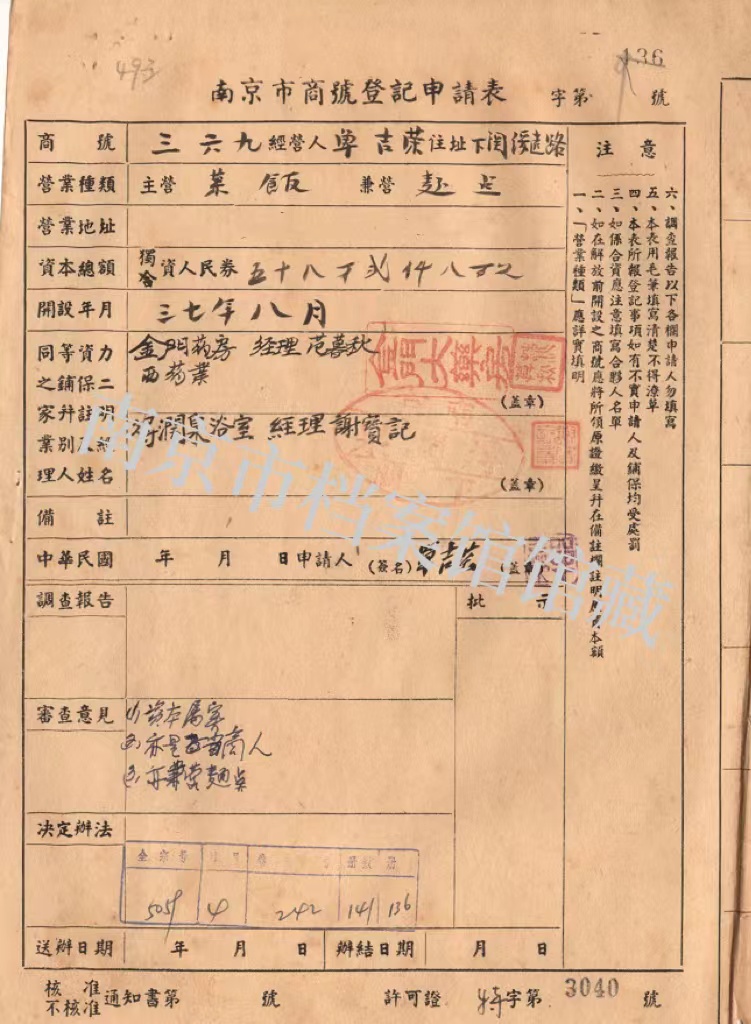 136
493
南京市商號登記申請表 字第 號
商號 三六九 經營人 單吉榮 住址 下関綏遠路
營業種類 主營 菜飯 兼營 麵点
營業地址
資本總額 獨合資人民券 五十八万弍仟八百
開設年月 三七年八月
同等資力之鋪保二家并註明業別及經理人姓名
金門葯房 經理 范暮秋
西葯業
金門大藥房
(盖章)
潤泉浴室 經理 謝寳記
(盖章)
備註
中華民國 年 月 日 申請人 (簽名) 單吉榮 (盖章)
調查報告
批示
審查意見
(1) 資本屬實
(2) 亦是商人
(3) 亦兼營麵点
決定辦法
全宗号 目 卷 号 册数 册
5059 4 242 141 136
送辦日期 年 月 日 辦結日期 月 日
核准
不核准 通知書第 號 許可證 特字第 3040 號
注意
一、「營業種類」應詳實填明
二、如在解放前開設之商號應將所領原證繳呈幷在備註欄註明原資本額
三、如係合資應注意填寫合夥人名單
四、本表所報登記事項如有不實申請人及鋪保均受處罰
五、本表用毛筆填寫清楚不得潦草
六、調查報告以下各欄申請人勿填寫
南京市档案馆馆藏